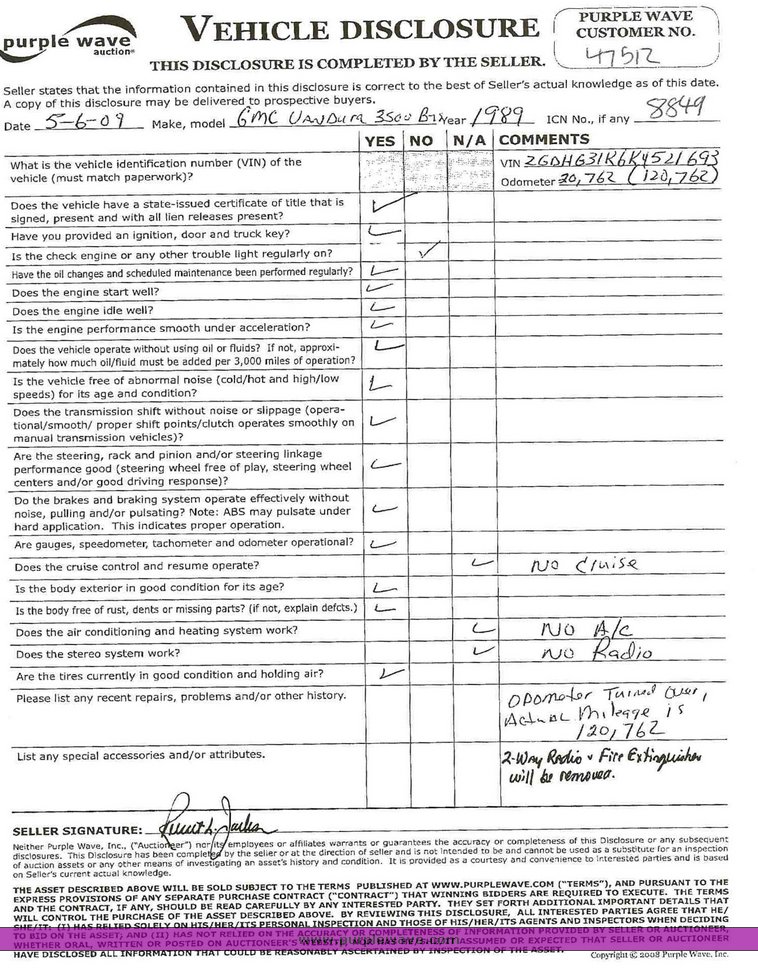 purple wave
auction®
VEHICLE DISCLOSURE
THIS DISCLOSURE IS COMPLETED BY THE SELLER.
PURPLE WAVE
CUSTOMER NO.
47512
Seller states that the information contained in this disclosure is correct to the best of Seller's actual knowledge as of this date.
A copy of this disclosure may be delivered to prospective buyers.
Date 5-6-09 Make, model GMC Vandura 3500 Year 1989 ICN No., if any 8849
YES NO N/A COMMENTS
What is the vehicle identification number (VIN) of the
vehicle (must match paperwork)?
VIN 2GDHG31K6K4521693
Odometer 20,762 (120,762)
Does the vehicle have a state-issued certificate of title that is
signed, present and with all lien releases present?
Have you provided an ignition, door and truck key?
Is the check engine or any other trouble light regularly on?
Have the oil changes and scheduled maintenance been performed regularly?
Does the engine start well?
Does the engine idle well?
Is the engine performance smooth under acceleration?
Does the vehicle operate without using oil or fluids? If not, approxi-
mately how much oil/fluid must be added per 3,000 miles of operation?
Is the vehicle free of abnormal noise (cold/hot and high/low
speeds) for its age and condition?
Does the transmission shift without noise or slippage (opera-
tional/smooth/ proper shift points/clutch operates smoothly on
manual transmission vehicles)?
Are the steering, rack and pinion and/or steering linkage
performance good (steering wheel free of play, steering wheel
centers and/or good driving response)?
Do the brakes and braking system operate effectively without
noise, pulling and/or pulsating? Note: ABS may pulsate under
hard application. This indicates proper operation.
Are gauges, speedometer, tachometer and odometer operational?
Does the cruise control and resume operate? No Cruise
Is the body exterior in good condition for its age?
Is the body free of rust, dents or missing parts? (if not, explain defcts.)
Does the air conditioning and heating system work? No A/c
Does the stereo system work? No Radio
Are the tires currently in good condition and holding air?
Please list any recent repairs, problems and/or other history.
Odometer Turned Over,
Actual Mileage is
120,762
List any special accessories and/or attributes.
2-Way Radio & Fire Extinguisher
will be removed.
SELLER SIGNATURE:
Neither Purple Wave, Inc., ("Auctioneer") nor its employees or affiliates warrants or guarantees the accuracy or completeness of this Disclosure or any subsequent
disclosures. This Disclosure has been completed by the seller or at the direction of seller and is not intended to be and cannot be used as a substitute for an inspection
of auction assets or any other means of investigating an asset's history and condition. It is provided as a courtesy and convenience to interested parties and is based
on Seller's current actual knowledge.
THE ASSET DESCRIBED ABOVE WILL BE SOLD SUBJECT TO THE TERMS PUBLISHED AT WWW.PURPLEWAVE.COM ("TERMS"), AND PURSUANT TO THE
EXPRESS PROVISIONS OF ANY SEPARATE PURCHASE CONTRACT ("CONTRACT") THAT WINNING BIDDERS ARE REQUIRED TO EXECUTE. THE TERMS
AND THE CONTRACT, IF ANY, SHOULD BE READ CAREFULLY BY ANY INTERESTED PARTY. THEY SET FORTH ADDITIONAL IMPORTANT DETAILS THAT
WILL CONTROL THE PURCHASE OF THE ASSET DESCRIBED ABOVE. BY REVIEWING THIS DISCLOSURE, ALL INTERESTED PARTIES AGREE HE/
SHE/IT: (I) HAS RELIED SOLELY ON HIS/HER/ITS PERSONAL INSPECTION AND THOSE OF HIS/HER/ITS AGENTS AND INSPECTORS WHEN DECIDING
TO BID ON THE ASSET; AND (II) HAS NOT RELIED ON THE ACCURACY OR COMPLETENESS OF INFORMATION PROVIDED BY SELLER OR AUCTIONEER
WHETHER ORAL, WRITTEN OR POSTED ON AUCTIONEER'S ASSUMED OR EXPECTED THAT SELLER OR AUCTIONEER
HAVE DISCLOSED ALL INFORMATION THAT COULD BE REASONABLY ASCERTAINED BY INSPECTION OF THE ASSET.
Copyright © 2008 Purple Wave, Inc.